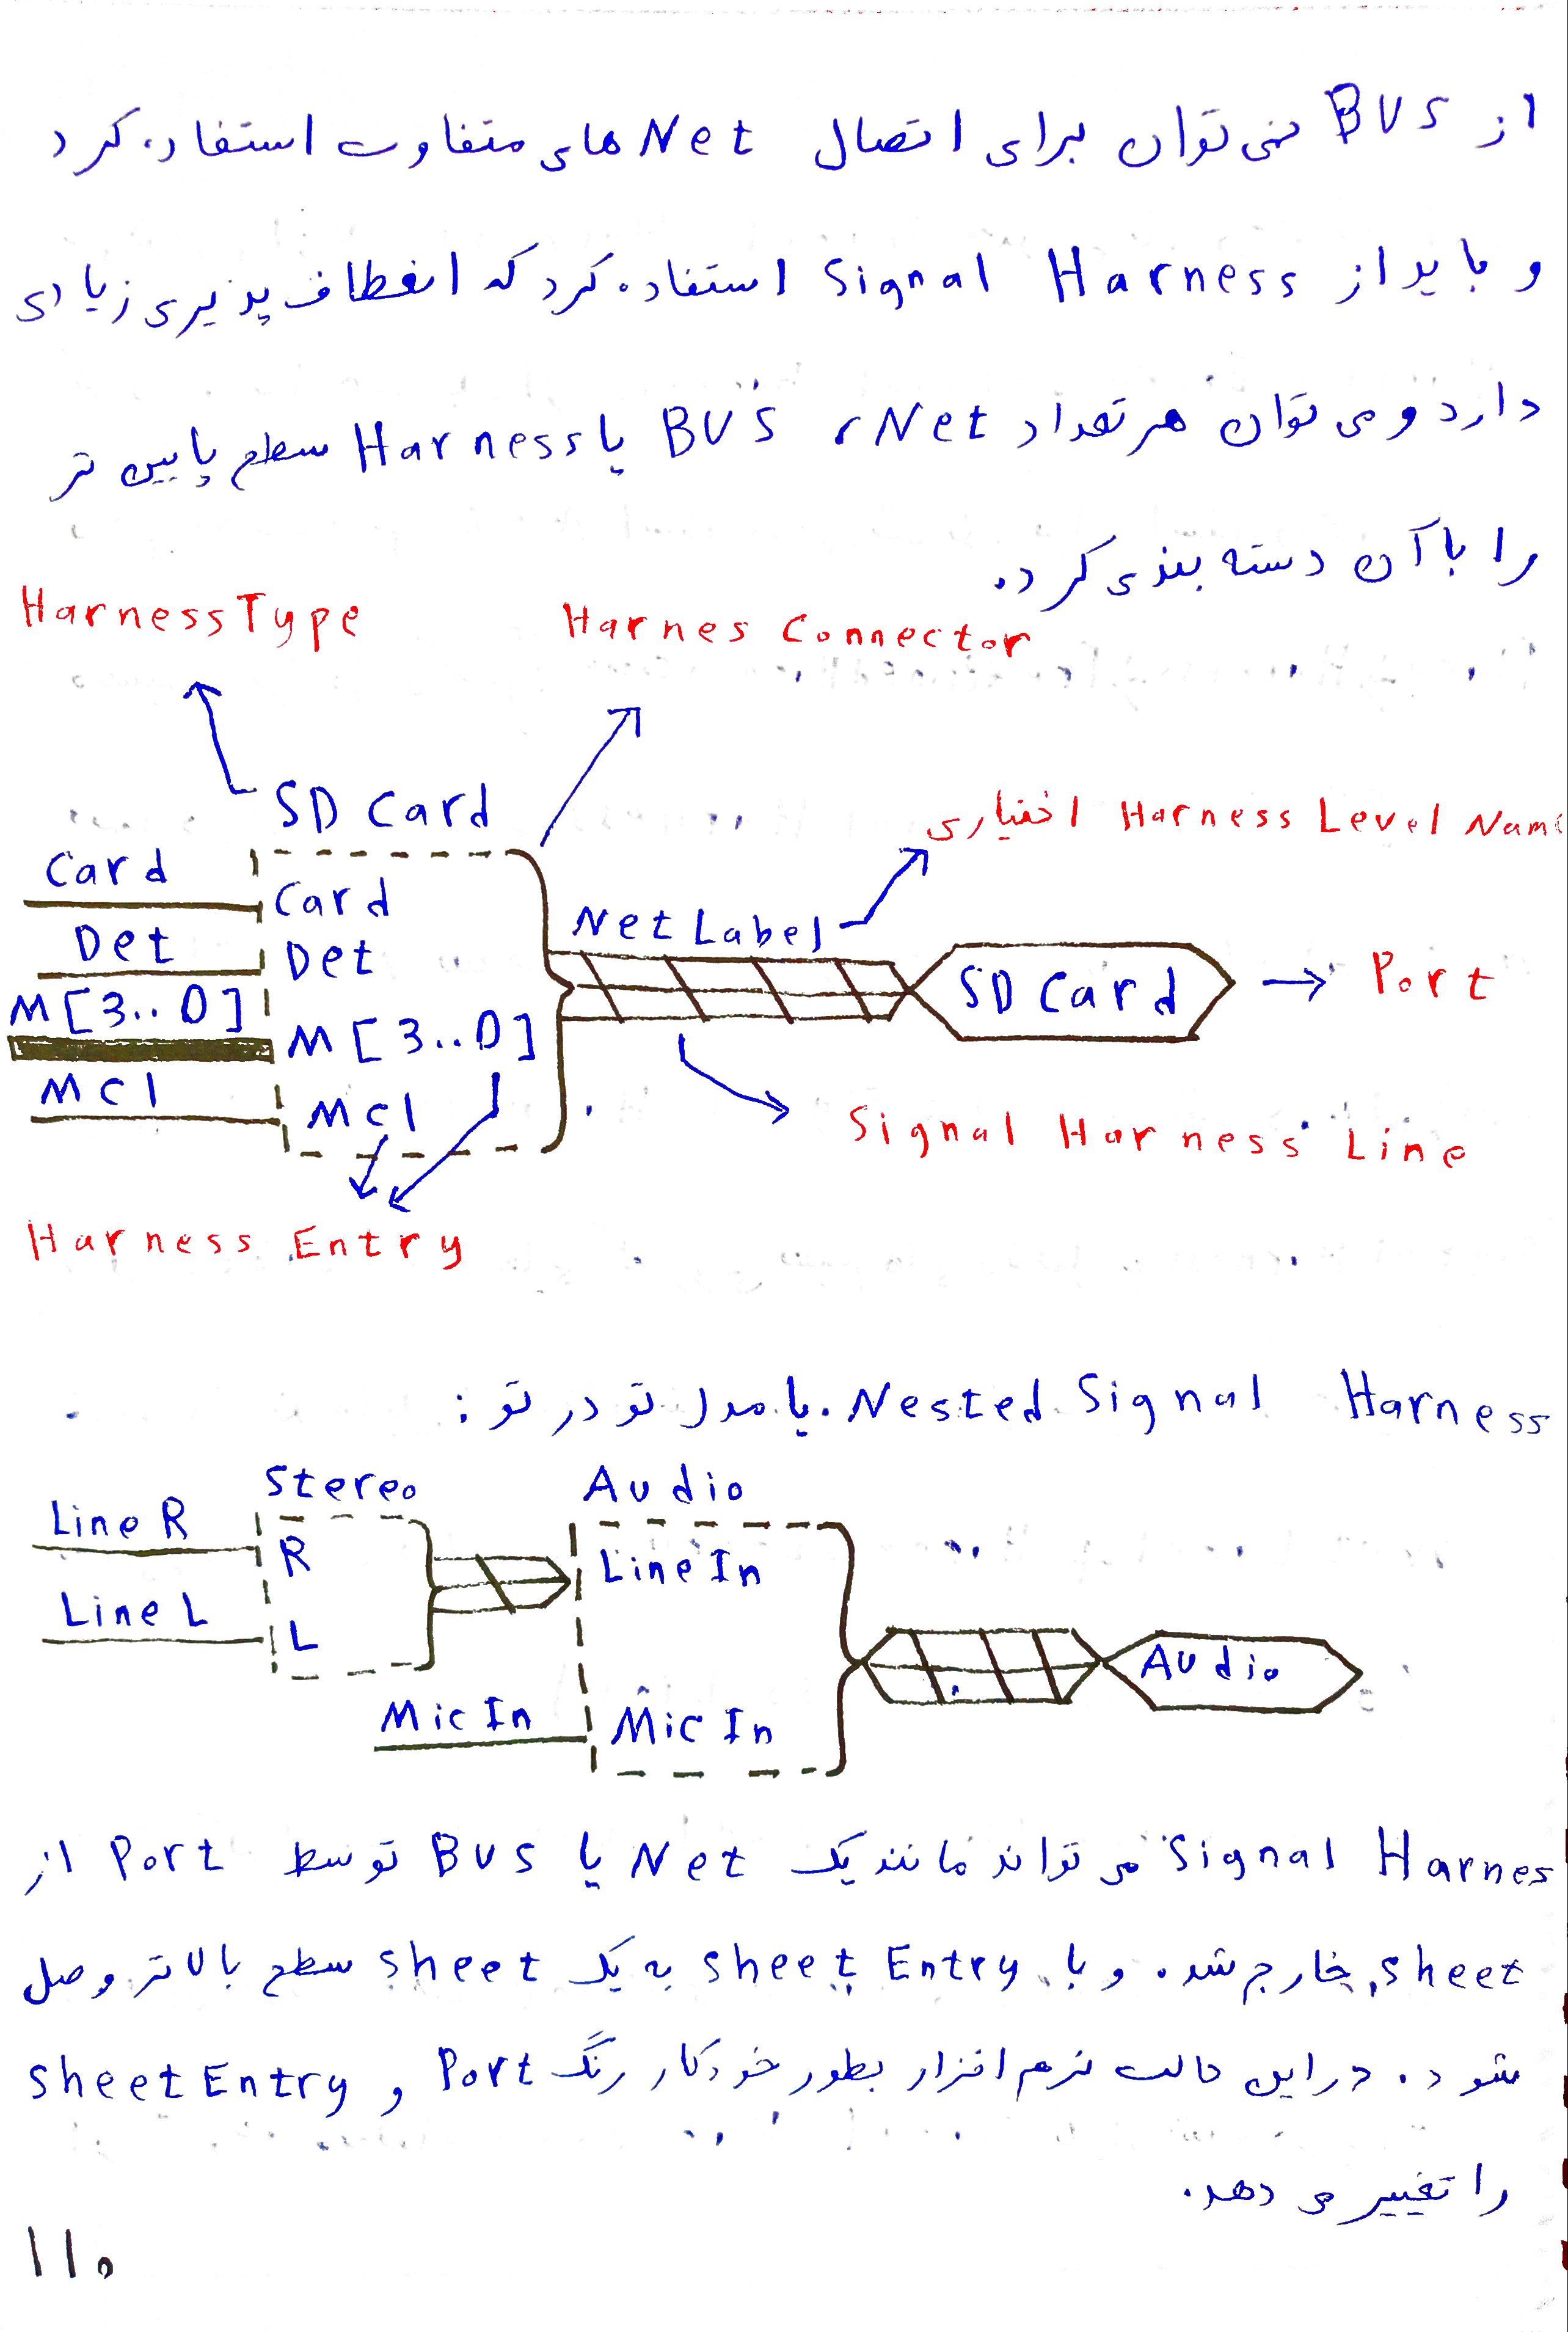 از BUS نمی توان برای اتصال Net های متفاوت استفاده کرد
و باید از Signal Harness استفاده کرد که انعطاف پذیری زیادی
دارد و می توان هر تعداد Net، BUS یا Harness سطح پایین تر
را با آن دسته بندی کرد.
Harness Type
Harnes Connector
SD Card
اختیاری Harness Level Name
Card
Card
Net Label
Det
Det
SD Card
Port
M[3..0]
M[3..0]
MCl
Mcl
Signal Harness Line
Harness Entry
Nested Signal Harness یا مدل تو در تو :
Stereo
Audio
Line R
R
Line In
Line L
L
Audio
Mic In
Mic In
Signal Harnes می تواند مانند یک Net یا BUS توسط Port از
sheet خارج شده و با sheet Entry به یک sheet سطح بالاتر وصل
شود. در این حالت نرم افزار بطور خودکار رنگ Port و sheet Entry
را تغییر می دهد.
۱۱۰